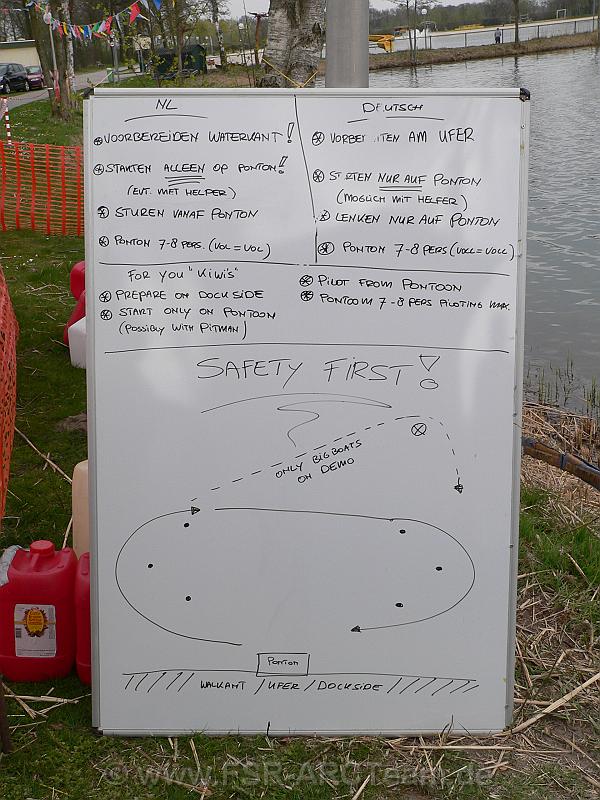 NL
VOORBEREIDEN WATERKANT!
STARTEN ALLEEN OP PONTON!
(EVT. MET HELPER)
STUREN VANAF PONTON
PONTON 7-8 PERS. (VOL=VOL)
DEUTSCH
VORBEREITEN AM UFER
STARTEN NUR AUF PONTON
(MOGLICH MIT HELFER)
LENKEN NUR AUF PONTON
PONTON 7-8 PERS (VOLL=VOLL)
FOR YOU "KIWI'S"
PREPARE ON DOCKSIDE
START ONLY ON PONTOON
(POSSIBLY WITH PITMAN)
PILOT FROM PONTOON
PONTOOM 7-8 PERS PILOTING MAX.
SAFETY FIRST!
ONLY BIG BOATS
ON DEMO
PONTON
WALKANT / UFER / DOCKSIDE
© www.FSR-ARGTeam.de